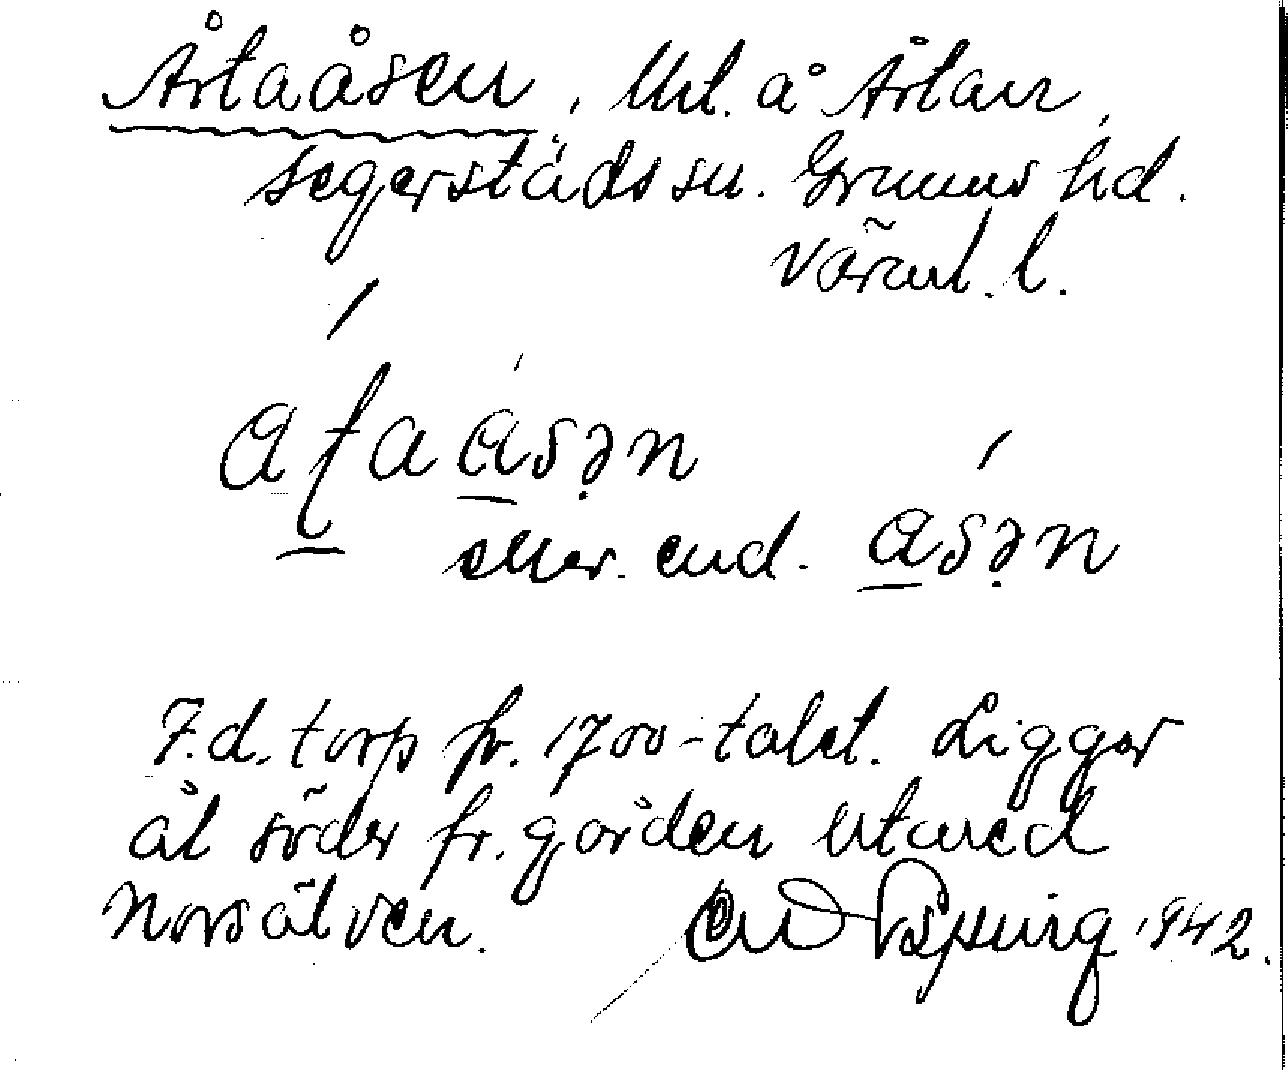 Årtaåsen, Utl. å Årtan,
Segerstads sn. Grums hd.
Värml. l.
aʈaåsən
eller end. åsən
F.d. torp fr. 1700-talet. Ligger
åt söder fr. gården utmed
Norsälven. 1942.